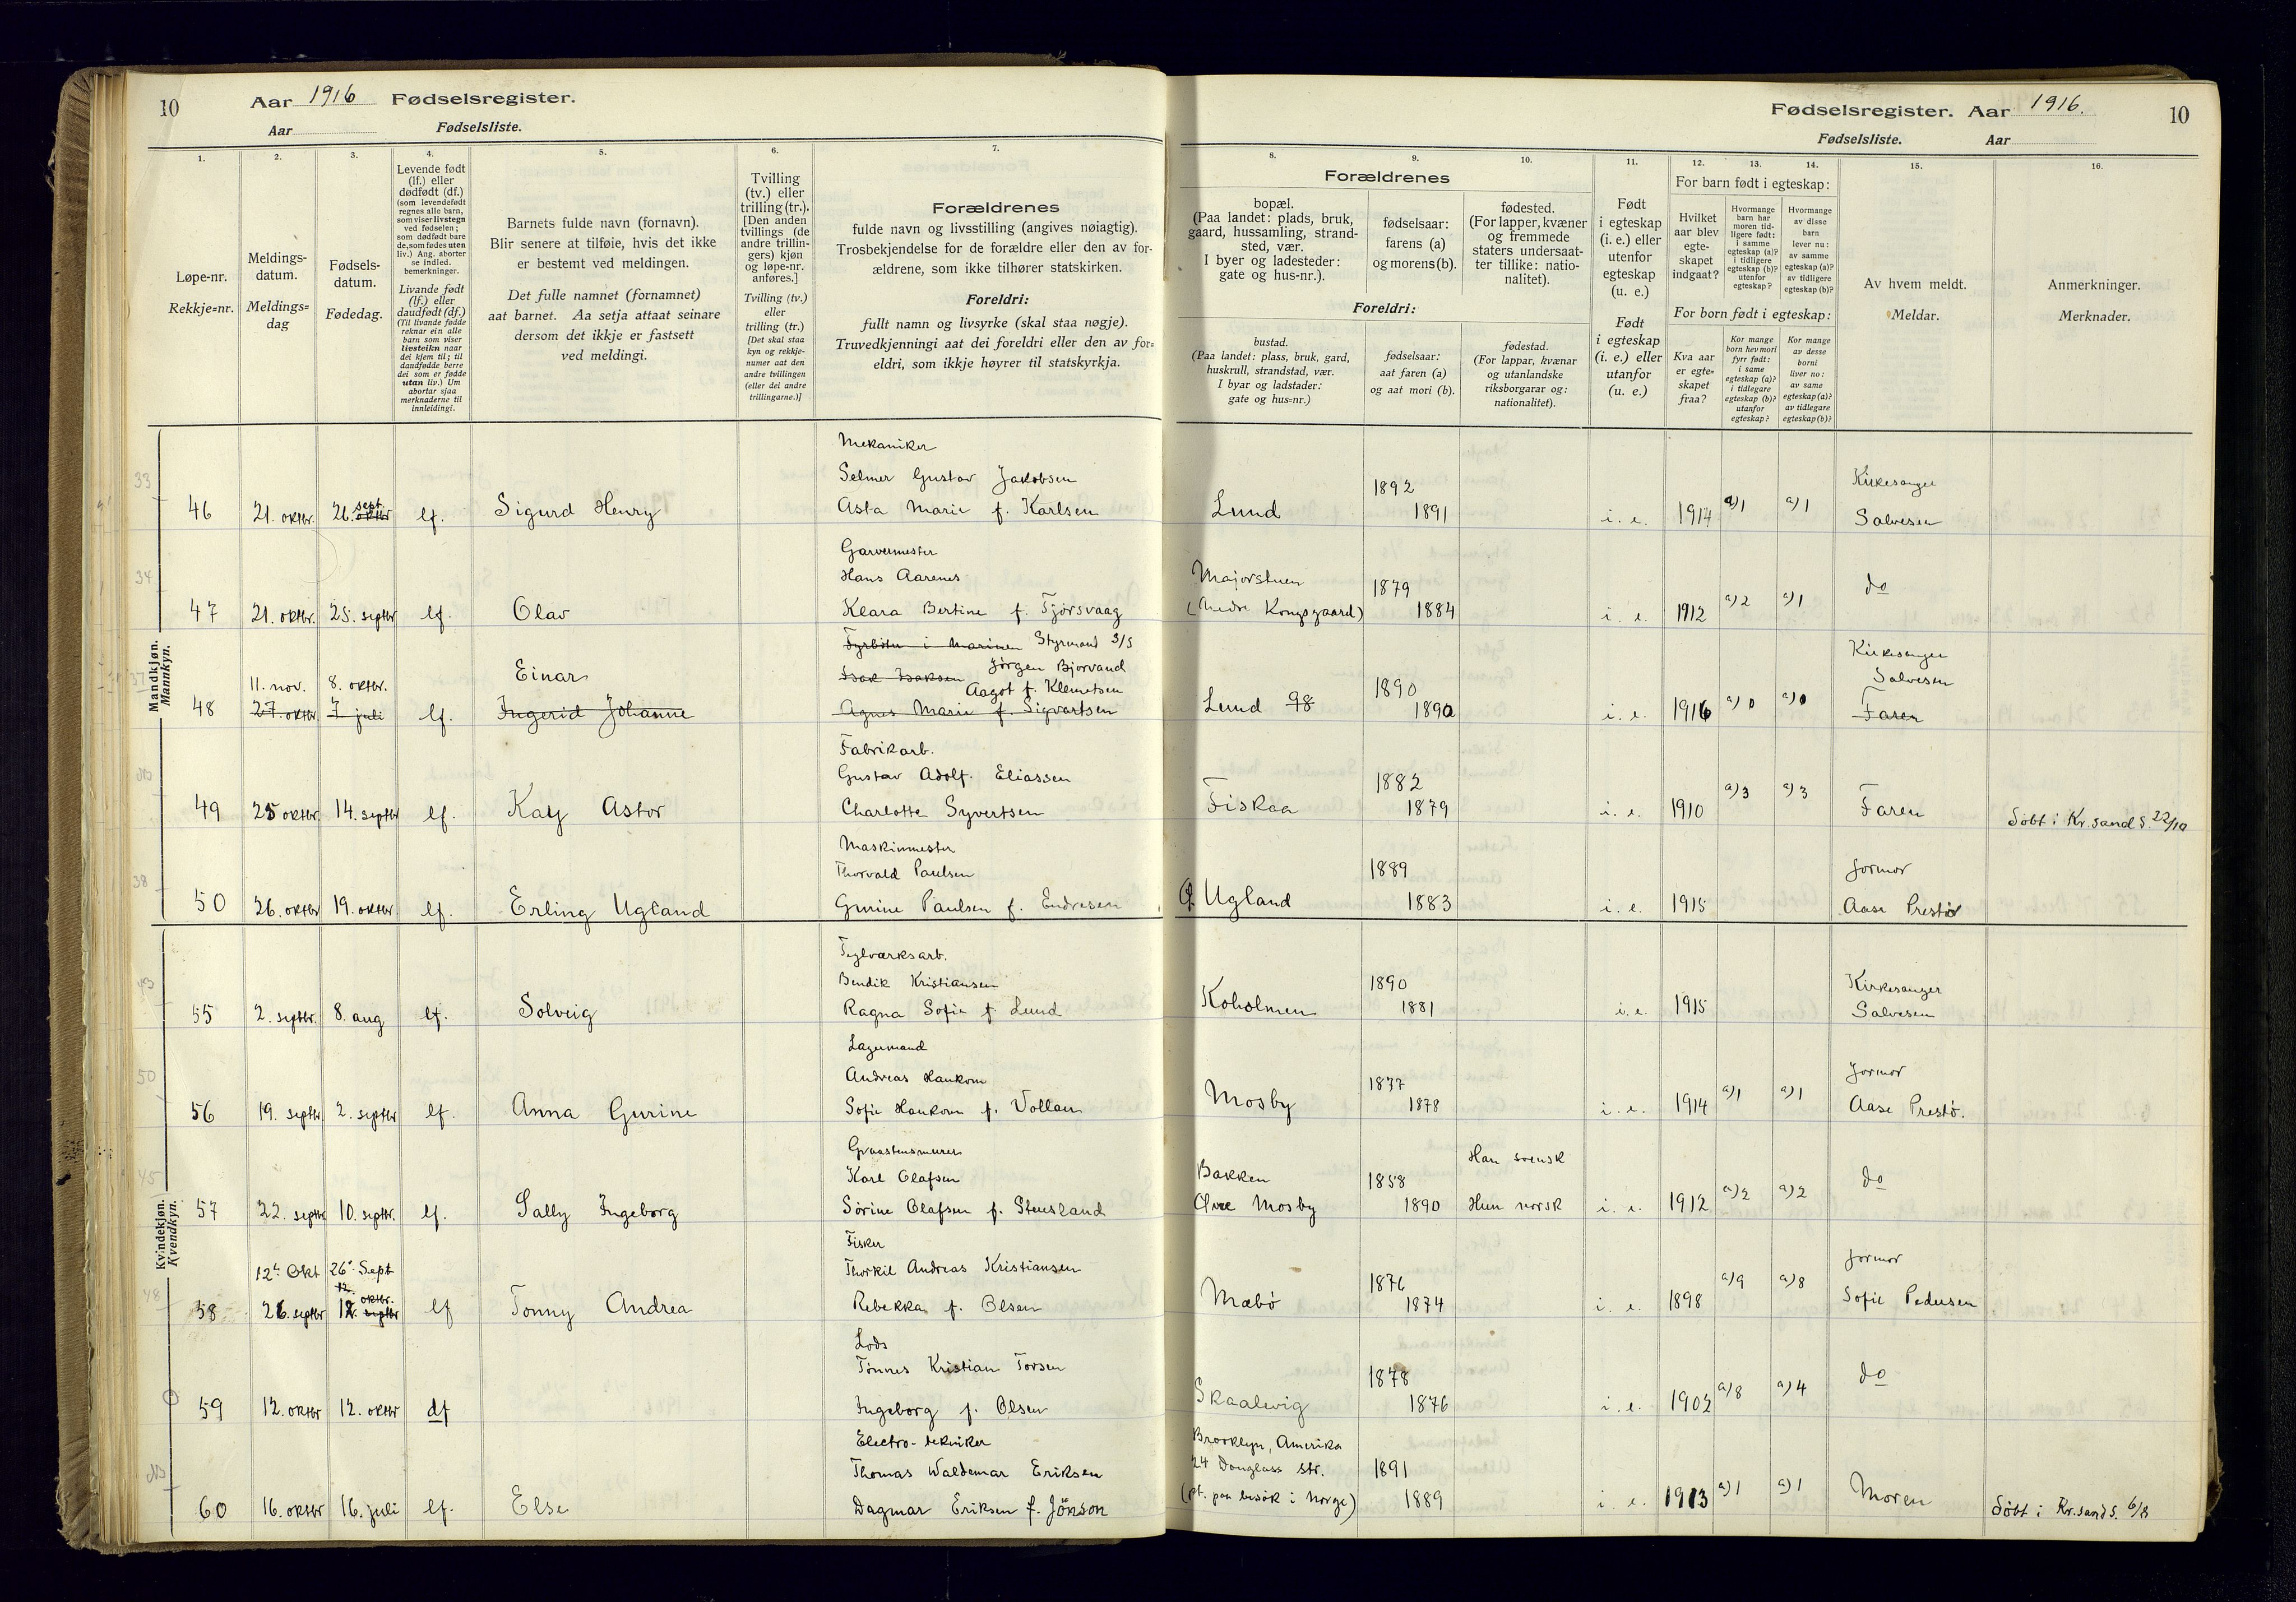 10 Aar 1916 Fødselsregister.
Aar Fødselsliste.
1.
2.
3.
4.
5.
6.
7.
Løpe-nr.
Rekkje=nr.
Meldings-
datum.
Meldings=
dag
Fødsels-
datum.
Fødedag.
Levende født
(lf.) eller
dødfødt (df.)
(som levendefødt
regnes alle barn,
som viser livstegn
ved fødselen;
som dødfødt bare
de, som fødes uten
liv.) Ang. aborter
se indled.
bemerkninger.
Livande født
(lf.) eller
daudfødt (df.)
(Til livande fødde
reknar ein alle
barn som viser
livsteikn naar
dei kjem til; til
daudfødde berre
dei som er fødde
utan liv.) Um
abortar sjaa
merknaderne til
innleidingi.
Barnets fulde navn (fornavn).
Blir senere at tilføie, hvis det ikke
er bestemt ved meldingen.
Det fulle namnet (fornamnet)
aat barnet. Aa setja attaat seinare
dersom det ikkje er fastsett
ved meldingi.
Tvilling
(tv.) eller
trilling (tr.).
[Den anden
tvillings (de
andre trillin-
gers) kjøn
og løpe-nr.
anføres.]
Tvilling (tv.)
eller
trilling (tr.)
[Det skal staa
kyn og rekkje-
numer aat den
andre tvillingen
(eller dei andre
trillingarne.)]
Forældrenes
fulde navn og livsstilling (angives nøiagtig).
Trosbekjendelse for de forældre eller den av for-
ældrene, som ikke tilhører statskirken.
Foreldri:
fullt namn og livsyrke (skal staa nøgje).
Truvedkjenningi aat dei foreldri eller den av for=
eldri, som ikkje høyrer til statskyrkja.
Fødselsregister. Aar 1916. 10
Fødselsliste. Aar
8.
9.
10.
11.
12.
13.
14.
15.
16.
Forældrenes
bopæl.
(Paa landet: plads, bruk,
gaard, hussamling, strand-
sted, vær.
I byer og ladesteder:
gate og hus-nr.).
fødselsaar:
farens (a)
og morens (b).
fødested.
(For lapper, kvæner
og fremmede
staters undersaat-
ter tillike: natio-
nalitet).
Foreldri:
bustad.
(Paa landet: plass, bruk, gard,
huskrull, strandstad, vær.
I byar og ladstader:
gate og hus=nr.)
fødselsaar:
aat faren (a)
og aat mori (b).
fødestad.
(For lappar, kvænar
og utanlandske
riksborgarar og:
nationalitet).
Født
i egteskap
(i. e.) eller
utenfor
egteskap
(u. e.)
Født
i egteskap
(i. e.) eller
utanfor
(u. e.)
For barn født i egteskap:
Hvilket
aar blev
egte-
skapet
indgaat?
Hvormange
barn har
moren tid-
ligere født:
i samme
egteskap (a)?
i tidligere
egteskap (b)?
utenfor
egteskap?
Hvormange
av disse
barn
lever nu:
av samme
egteskap (a)?
av tidligere
egteskap (b)?
For born født i egteskap:
Kva aar
er egte=
skapet
fraa?
Kor mange
born hev mori
fyrr født:
i same
egteskap (a)?
i tidlegare
egteskap (b)?
utanfor
egteskap?
Kor mange
av desse
borni
liver no:
av same
egteskap (a)?
av tidlegare
egteskap (b)?
Av hvem meldt.
Meldar.
Anmerkninger.
Merknader.
Mandkjøn.
Mannkyn.
33
Mekaniker
Selmer Gustav Jakobsen
46 21. oktbr. 26. sept. oktbr lf. Sigurd Henry Asta Marie f. Karlsen
Lund 1892 1891 i. e. 1914 a) 1 a) 1 Kirkesanger
Salvesen
34
Garvermester
Hans Aarenes
47 21. oktbr. 25. septbr lf. Olav Klara Bertine f. Tjörsvaag
Majorstuen
(Nedre Kongsgaard) 1879 1884 i. e. 1912 a) 2 a) 1 do
37
Fyrböter i Marinen Styrmand S/S
Einar Isak Isaksen Jörgen Bjorvand
11. nov. 8. oktbr. Aagot f. Klemetsen
48 27. oktbr 7 juli lf. Ingerid Johanne Agnes Marie f. Sigvartsen
Lund 98 1890 1890 i. e. 1916 a) 0 a) 0 Kirkesanger
Salvesen
Faren
NB
Fabrikarb.
Gustav Adolf. Eliassen
49 25 oktbr. 14. septbr lf. Kay Astor Charlotte Syvertsen
Fiskaa 1882 1879 i. e. 1910 a) 3 a) 3 Faren Döbt i Kr.sand S. 22/10
38
Maskinmester
Thorvald Paulsen
50 26. oktbr 19. oktbr. lf. Erling Ugland Gurine Paulsen f. Endresen
Ugland 1889 1883 i. e. 1915 Jormor
Aase Prestö
Kvindekjøn.
Kvendkyn.
43
Teglværksarb.
Bendik Kristiansen
55 2. septbr. 8. aug lf. Solveig Ragna Sofie f. Lund
Koholmen 1890 1881 i. e. 1915 Kirkesanger
Salvesen
50
Lagermand
Andreas Haukom
56 19. septbr 2. septbr lf. Anna Gurine Sofie Haukom f. Vollan
Mosby 1877 1878 i. e. 1914 a) 1 a) 1 Jormor
Aase Prestö.
45
Graastensmurer
Karl Olafsen
57 22. septbr 10. septbr. lf. Sally Ingeborg Sörine Olafsen f. Stensland
Bakken
Övre Mosby 1858 1890 Han svensk
Hun norsk i. e. 1912 a) 2 a) 2 do
48
Fisker
12te Okt 26de Sept Thorkil Andreas Kristiansen
58 26. septbr 12. oktbr. septbr lf Tonny Andrea Rebekka f. Olsen
Mæbö 1876 1874 i. e. 1898 a) 9 a) 8 Jormor
Sofie Pedersen
Lods
Tönnes Kristian Torsen
59 12. oktbr 12. oktbr df Ingeborg f. Olsen
Skaalevig 1878 1876 i. e. 1902 a) 8 a) 4 do
NB
Electro-tekniker
Thomas Waldemar Eriksen
60 16. oktbr 16. juli lf. Else Dagmar Eriksen f. Jönson
Brooklyn, Amerika
24 Douglass str.
(pt. paa besök i Norge) 1891 1889 i. e. 1913 a) 1 a) 1 Moren Döbt i Kr.sand S. 6/8